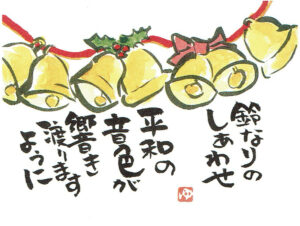 鈴なりの
しあわせ
平和の
音色が
響き
渡ります
ように
ゆ